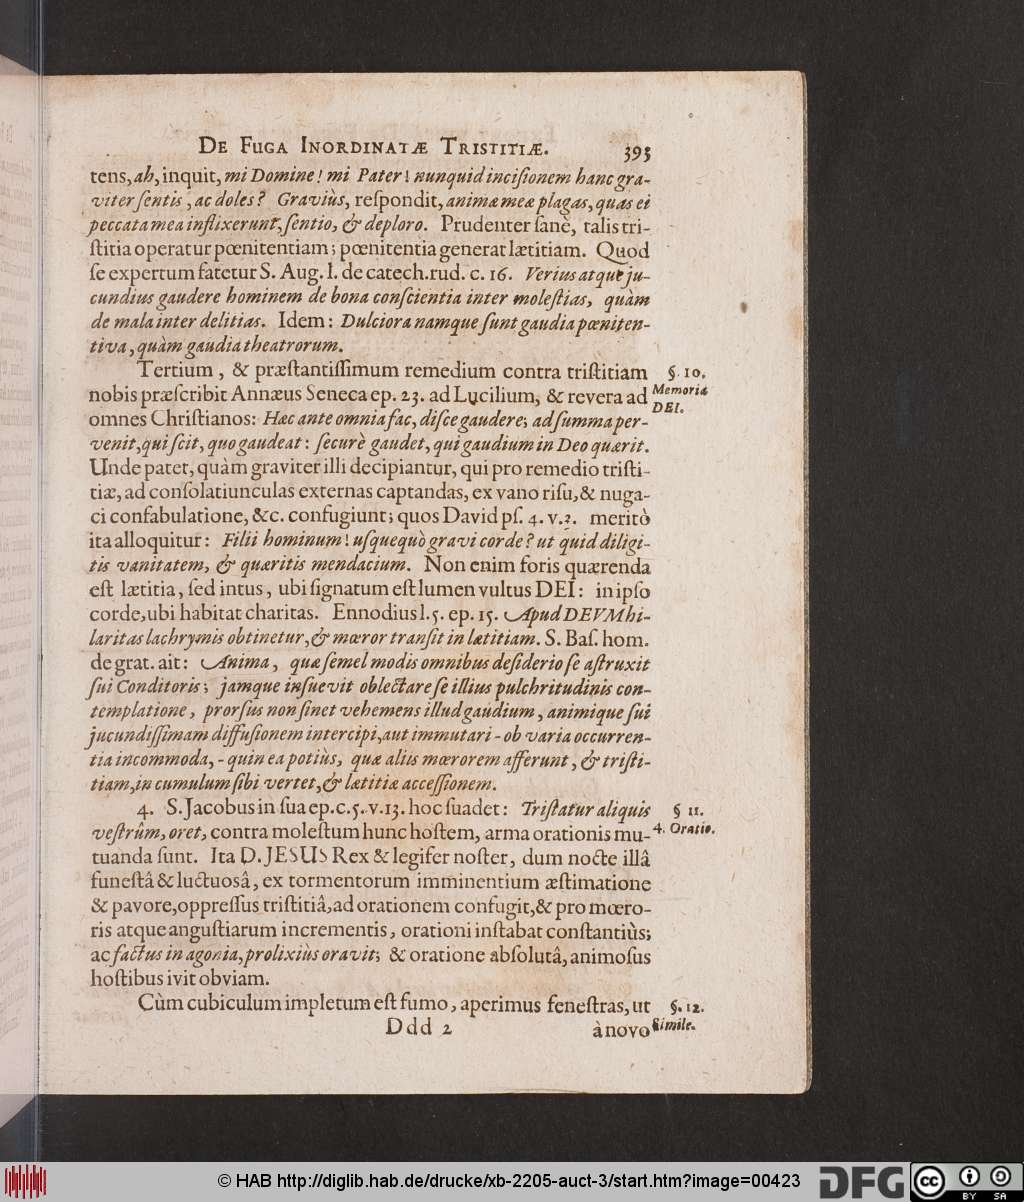 De Fuga Inordinatæ Tristitiæ. 395
tens, ah, inquit, mi Domine! mi Pater! nunquid incisionem hanc gra-
viter sentis, ac doles? Graviùs, respondit, animæ meæ plagas, quas ei
peccata mea inflixerunt, sentio, & deploro. Prudenter sanè, talis tri-
stitia operatur pœnitentiam; pœnitentia generat lætitiam. Quod
se expertum fatetur S. Aug. l. de catech. rud. c. 16. Verius atque ju-
cundius gaudere hominem de bona conscientia inter molestias, quàm
de mala inter delitias. Idem: Dulciora namque sunt gaudia pœniten-
tiva, quàm gaudia theatrorum.
Tertium, & præstantissimum remedium contra tristitiam §. 10.
nobis præscribit Annæus Seneca ep. 23. ad Lucilium, & revera ad Memoria
omnes Christianos: Hæc ante omnia fac, disce gaudere; ad summa per- DEI.
venit, qui scit, quo gaudeat: securè gaudet, qui gaudium in Deo quærit.
Unde patet, quàm graviter illi decipiantur, qui pro remedio tristi-
tiæ, ad consolatiunculas externas captandas, ex vano risu, & nuga-
ci confabulatione, &c. confugiunt; quos David ps. 4. v. 3. meritò
ita alloquitur: Filii hominum! usquequò gravi corde? ut quid diligi-
tis vanitatem, & quæritis mendacium. Non enim foris quærenda
est lætitia, sed intus, ubi signatum est lumen vultus DEI: in ipso
corde, ubi habitat charitas. Ennodius l. 5. ep. 15. Apud DEUM hi-
laritas lachrymis obtinetur, & mœror transit in lætitiam. S. Bas. hom.
de grat. ait: Anima, quæ semel modis omnibus desiderio se astruxit
sui Conditoris; jamque insuevit oblectare se illius pulchritudinis con-
templatione, prorsus non sinet vehemens illud gaudium, animique sui
jucundissimam diffusionem intercipi, aut immutari - ob varia occurren-
tia incommoda, - quin ea potiùs, quæ aliis mœrorem afferunt, & tristi-
tiam, in cumulum sibi vertet, & lætitiæ accessionem.
4. S. Jacobus in sua ep. c. 5. v. 13. hoc suadet: Tristatur aliquis § 11.
vestrûm, oret, contra molestum hunc hostem, arma orationis mu- 4. Oratio.
tuanda sunt. Ita D. JESUS Rex & legifer noster, dum nocte illâ
funestâ & luctuosâ, ex tormentorum imminentium æstimatione
& pavore, oppressus tristitiâ, ad orationem confugit, & pro mœro-
ris atque angustiarum incrementis, orationi instabat constantiùs;
ac factus in agonia, prolixiùs oravit; & oratione absolutâ, animosus
hostibus ivit obviam.
Cùm cubiculum impletum est fumo, aperimus fenestras, ut §. 12.
Ddd 2 à novo Simile.
© HAB http://diglib.hab.de/drucke/xb-2205-auct-3/start.htm?image=00423
DFG
cc BY SA